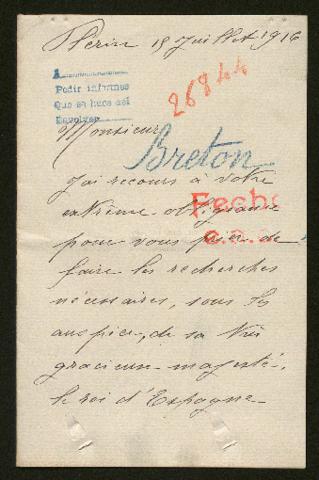 Plérin 15 Juillet 1916
A
Pedir informes
Que se hace así
Devolver
26844
Monsieur
Breton
J'ai recours à votre
Fecho
extrême obligeance
pour vous prier de
faire les recherches
nécessaires, sous les
auspices, de sa très
gracieuse majesté,
le roi d'Espagne